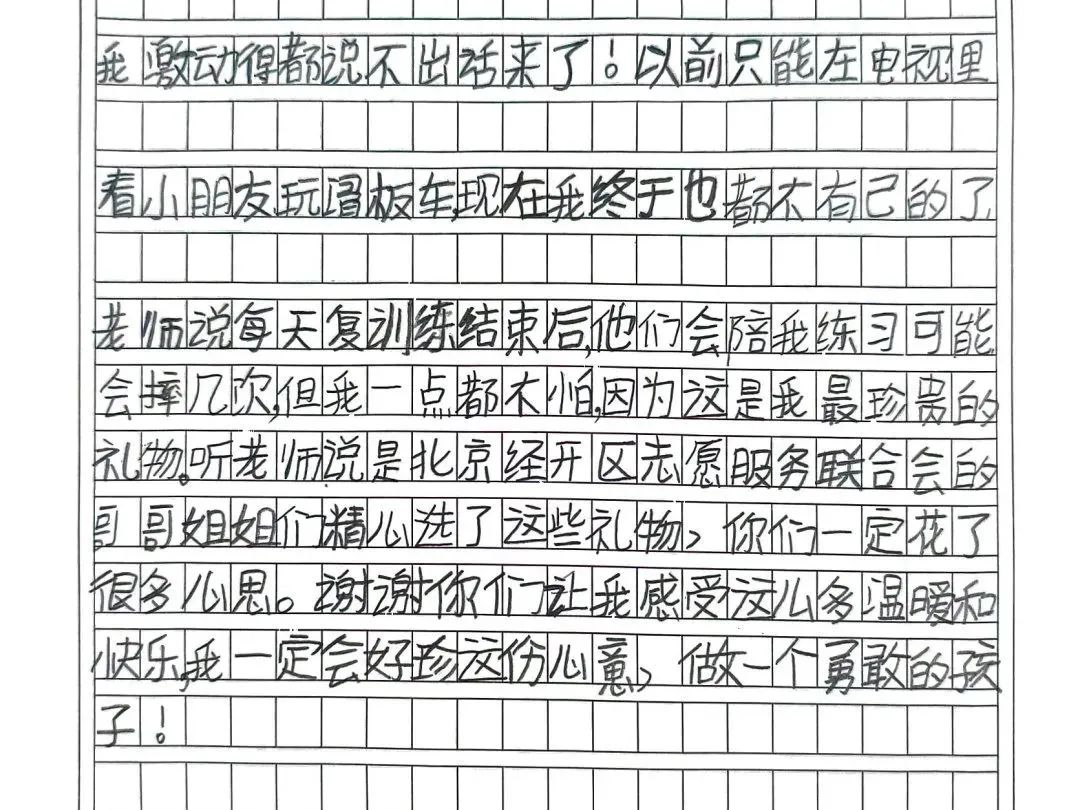 我激动得都说不出话来了！以前只能在电视里
看小朋友玩滑板车,现在我终于也都不有己的了
老师说每天复训练结束后,他们会陪我练习可能
会摔几次,但我一点都不怕,因为这是我最珍贵的
礼物。听老师说是北京经开区志愿服务联合会的
哥哥姐姐们精心选了这些礼物，你们一定花了
很多心思。谢谢你们让我感受这么多温暖和
快乐,我一定会好珍这份心意，做一个勇敢的孩
子！